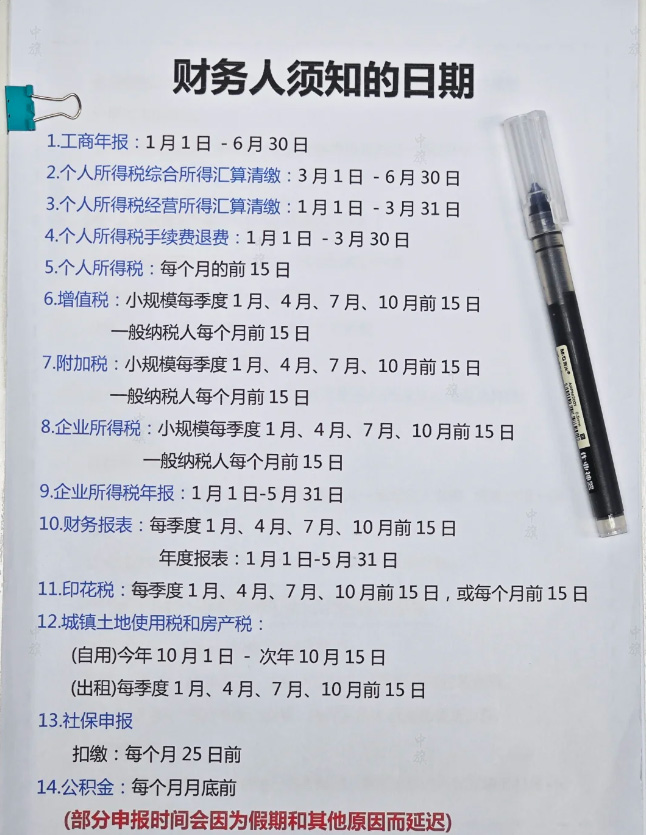 财务人须知的日期
1.工商年报：1月1日 - 6月30日
2.个人所得税综合所得汇算清缴：3月1日 - 6月30日
3.个人所得税经营所得汇算清缴：1月1日 - 3月31日
4.个人所得税手续费退费：1月1日 - 3月30日
5.个人所得税：每个月的前15日
6.增值税：小规模每季度1月、4月、7月、10月前15日
一般纳税人每个月前15日
7.附加税：小规模每季度1月、4月、7月、10月前15日
一般纳税人每个月前15日
8.企业所得税：小规模每季度1月、4月、7月、10月前15日
一般纳税人每个月前15日
9.企业所得税年报：1月1日-5月31日
10.财务报表：每季度1月、4月、7月、10月前15日
年度报表：1月1日-5月31日
11.印花税：每季度1月、4月、7月、10月前15日，或每个月前15日
12.城镇土地使用税和房产税：
(自用)今年10月1日 - 次年10月15日
(出租)每季度1月、4月、7月、10月前15日
13.社保申报
扣缴：每个月25日前
14.公积金：每个月月底前
(部分申报时间会因为假期和其他原因而延迟)
M&G